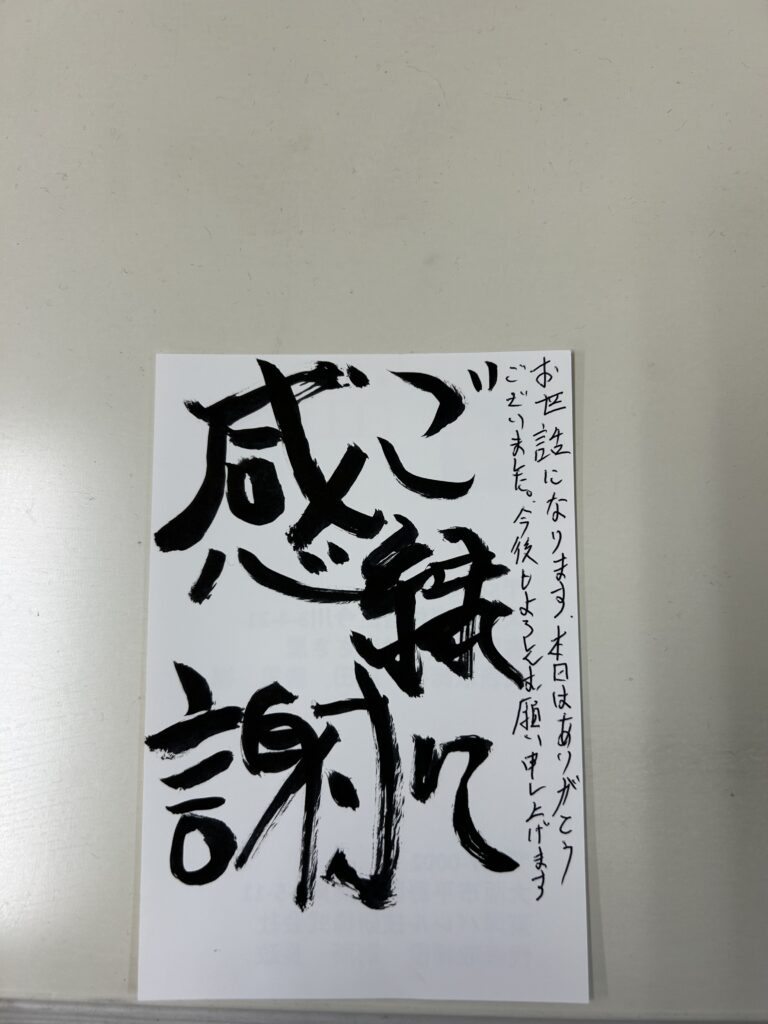 お世話になります、本日はありがとう
ございました。今後もよろしくお願い申し上げます
ご縁に
感謝